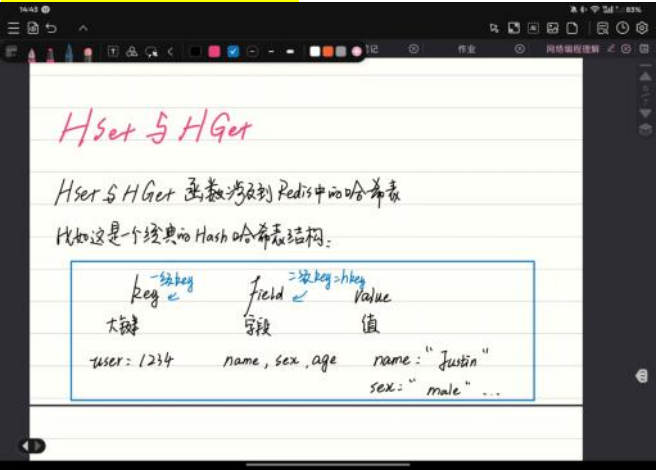 14:43
83%
作业
网络编程理解
HSet与HGet
HSet与HGet 函数涉及到Redis中的哈希表
比如这是一个经典的Hash哈希表结构:
一级key 二级key=hkey
key field value
大键 字段 值
user: 1234 name, sex, age name: "Justin"
sex: "male" ...